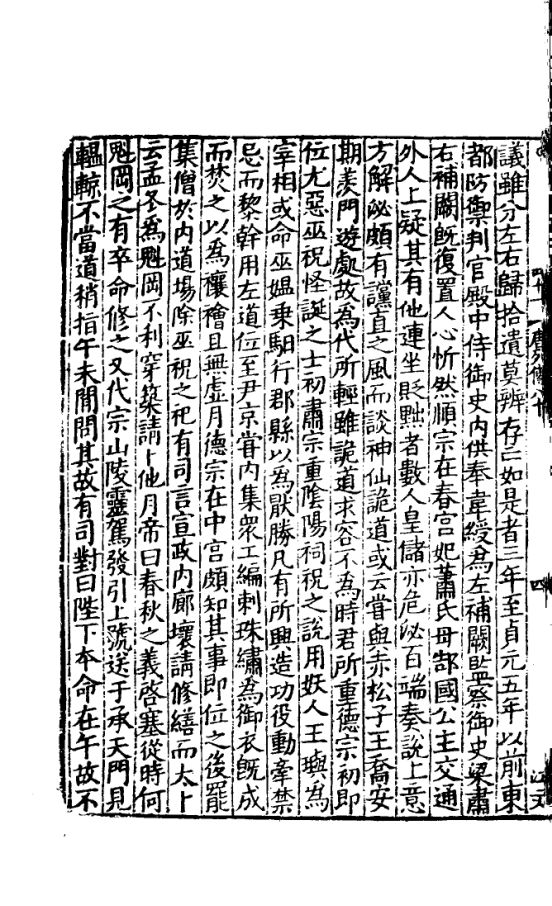 議雖分左右歸拾遺莫辨存亡如是者三年至貞元五年以前東
都防禦判官殿中侍御史內供奉韋綬為左補闕監察御史梁肅
右補闕既復置人心忻然順宗在春宮妃蕭氏母郜國公主交通
外人上疑其有他連坐貶黜者數人皇儲亦危泌百端奏說上意
方解泌頗有讜直之風而談神仙詭道或云嘗與赤松子王喬安
期羨門遊處故為代所輕雖詭道求容不為時君所重德宗初即
位尤惡巫祝怪誕之士初肅宗重陰陽祠祝之說用妖人王璵為
宰相或命巫媼乘馹行郡縣以為厭勝凡有所興造功役動牽禁
忌而黎幹用左道位至尹京嘗內集衆工編刺珠繡為御衣既成
而焚之以為禳禬且無虛月德宗在中宮頗知其事即位之後罷
集僧於內道場除巫祝之祀有司言宣政內廊壞請修繕而太卜
云孟冬為魁岡不利穿築請卜他月帝曰春秋之義啓塞從時何
魁岡之有卒命修之又代宗山陵靈駕發引上號送于承天門見
轀輬不當道稍指午未閒問其故有司對曰陛下本命在午故不